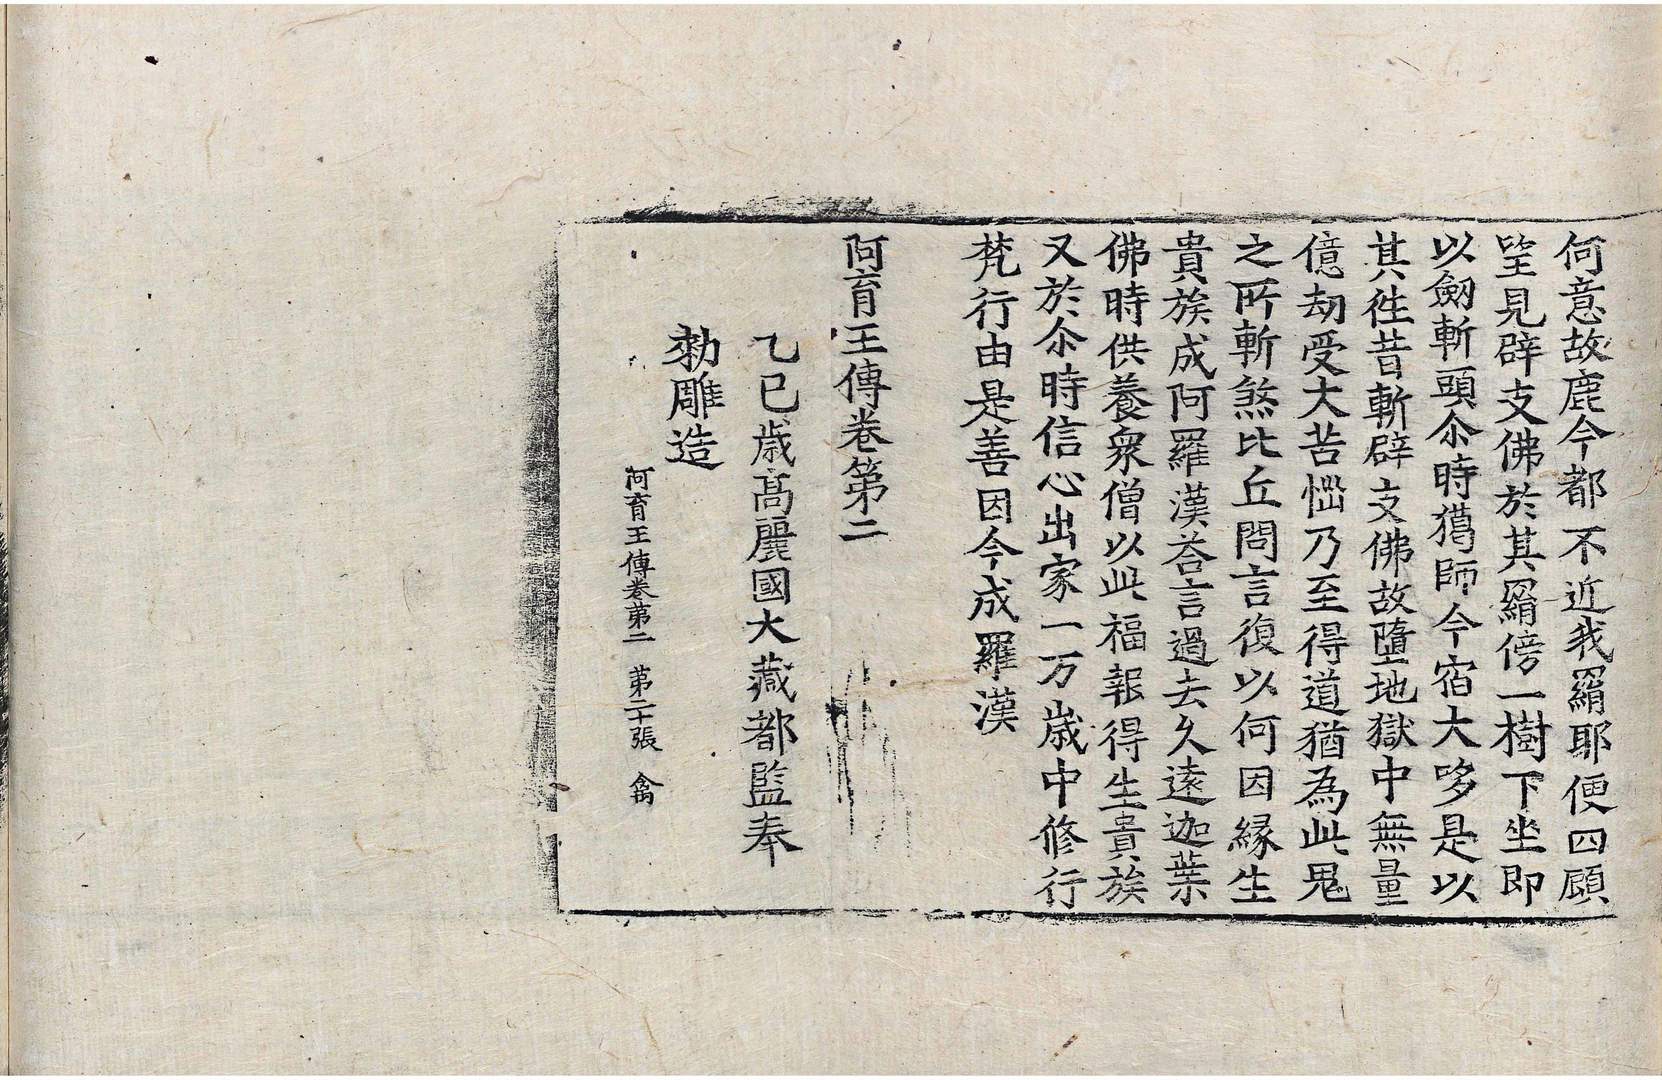 何意故鹿今都不近我羂耶便四顧
望見辟支佛於其羂傍一樹下坐即
以劒斬頭尒時獦師今宿大哆是以
其徃昔斬辟支佛故墮地獄中無量
億劫受大苦惱乃至得道猶為此鬼
之所斬煞比丘問言復以何因緣生
貴族成阿羅漢荅言過去久遠迦葉
佛時供養衆僧以此福報得生貴族
又於尒時信心出家一万歳中修行
梵行由是善因今成羅漢
阿育王傳卷第二
乙巳歳高麗國大藏都監奉
勑雕造
阿育王傳卷第二　第二十張　禽